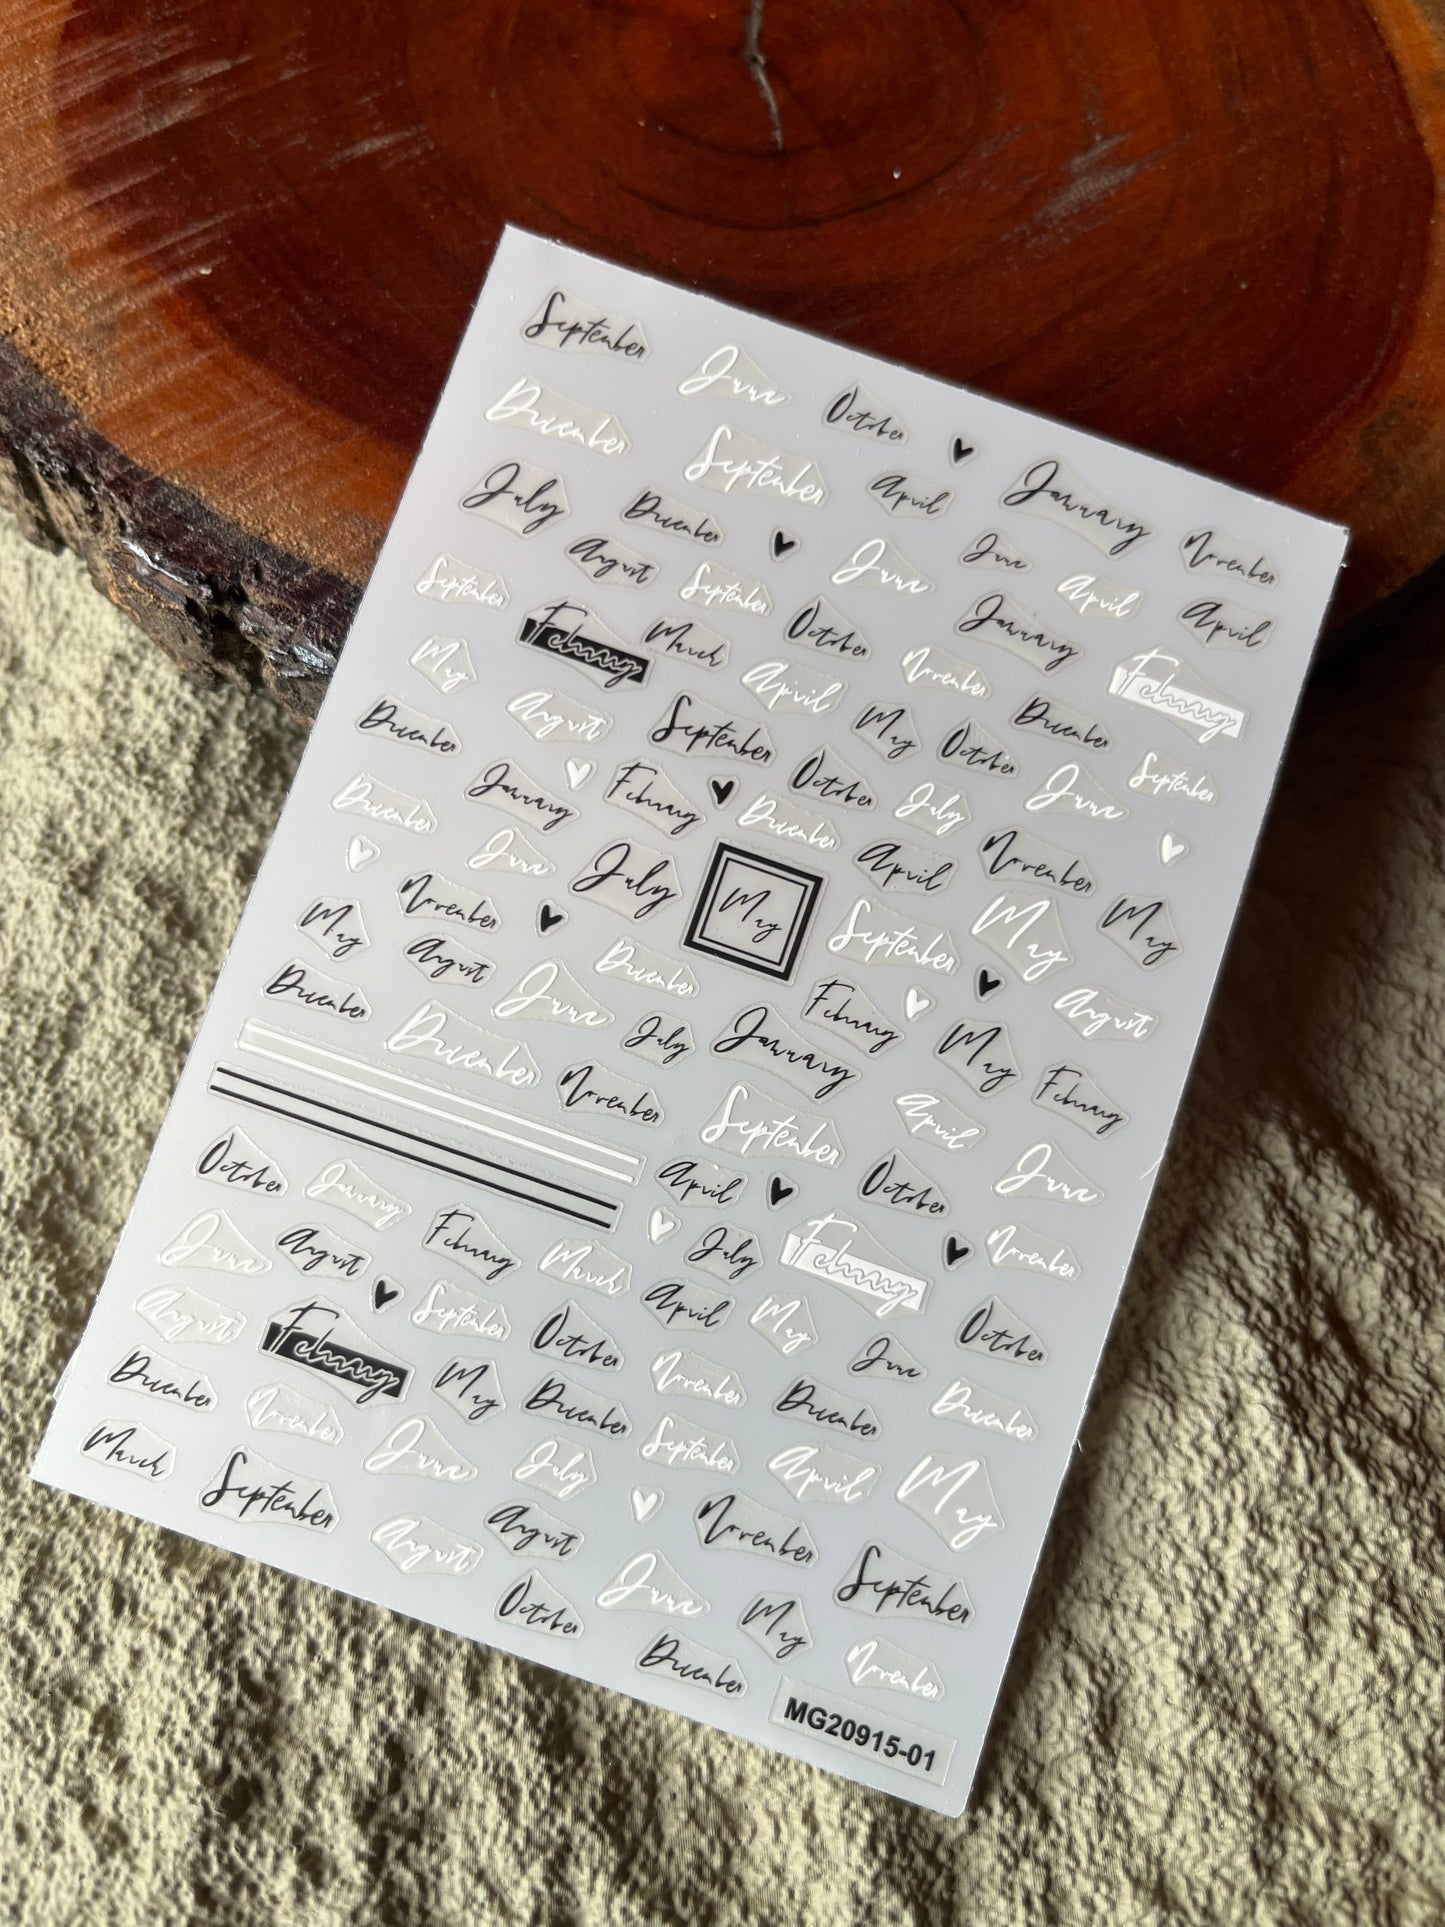 September June October
December September April January November
July December August June June April April
September September October January
February March April November February
May August September May October December September
December January February October July June
December June July December April November
November May September May May
May August December February August
December June July January May February
December November September April June
October January April October
June August February March July February November
August September October April May June October
December February May December November December December
March November June July September April May
September August August November September
October June May
December November
MG20915-01